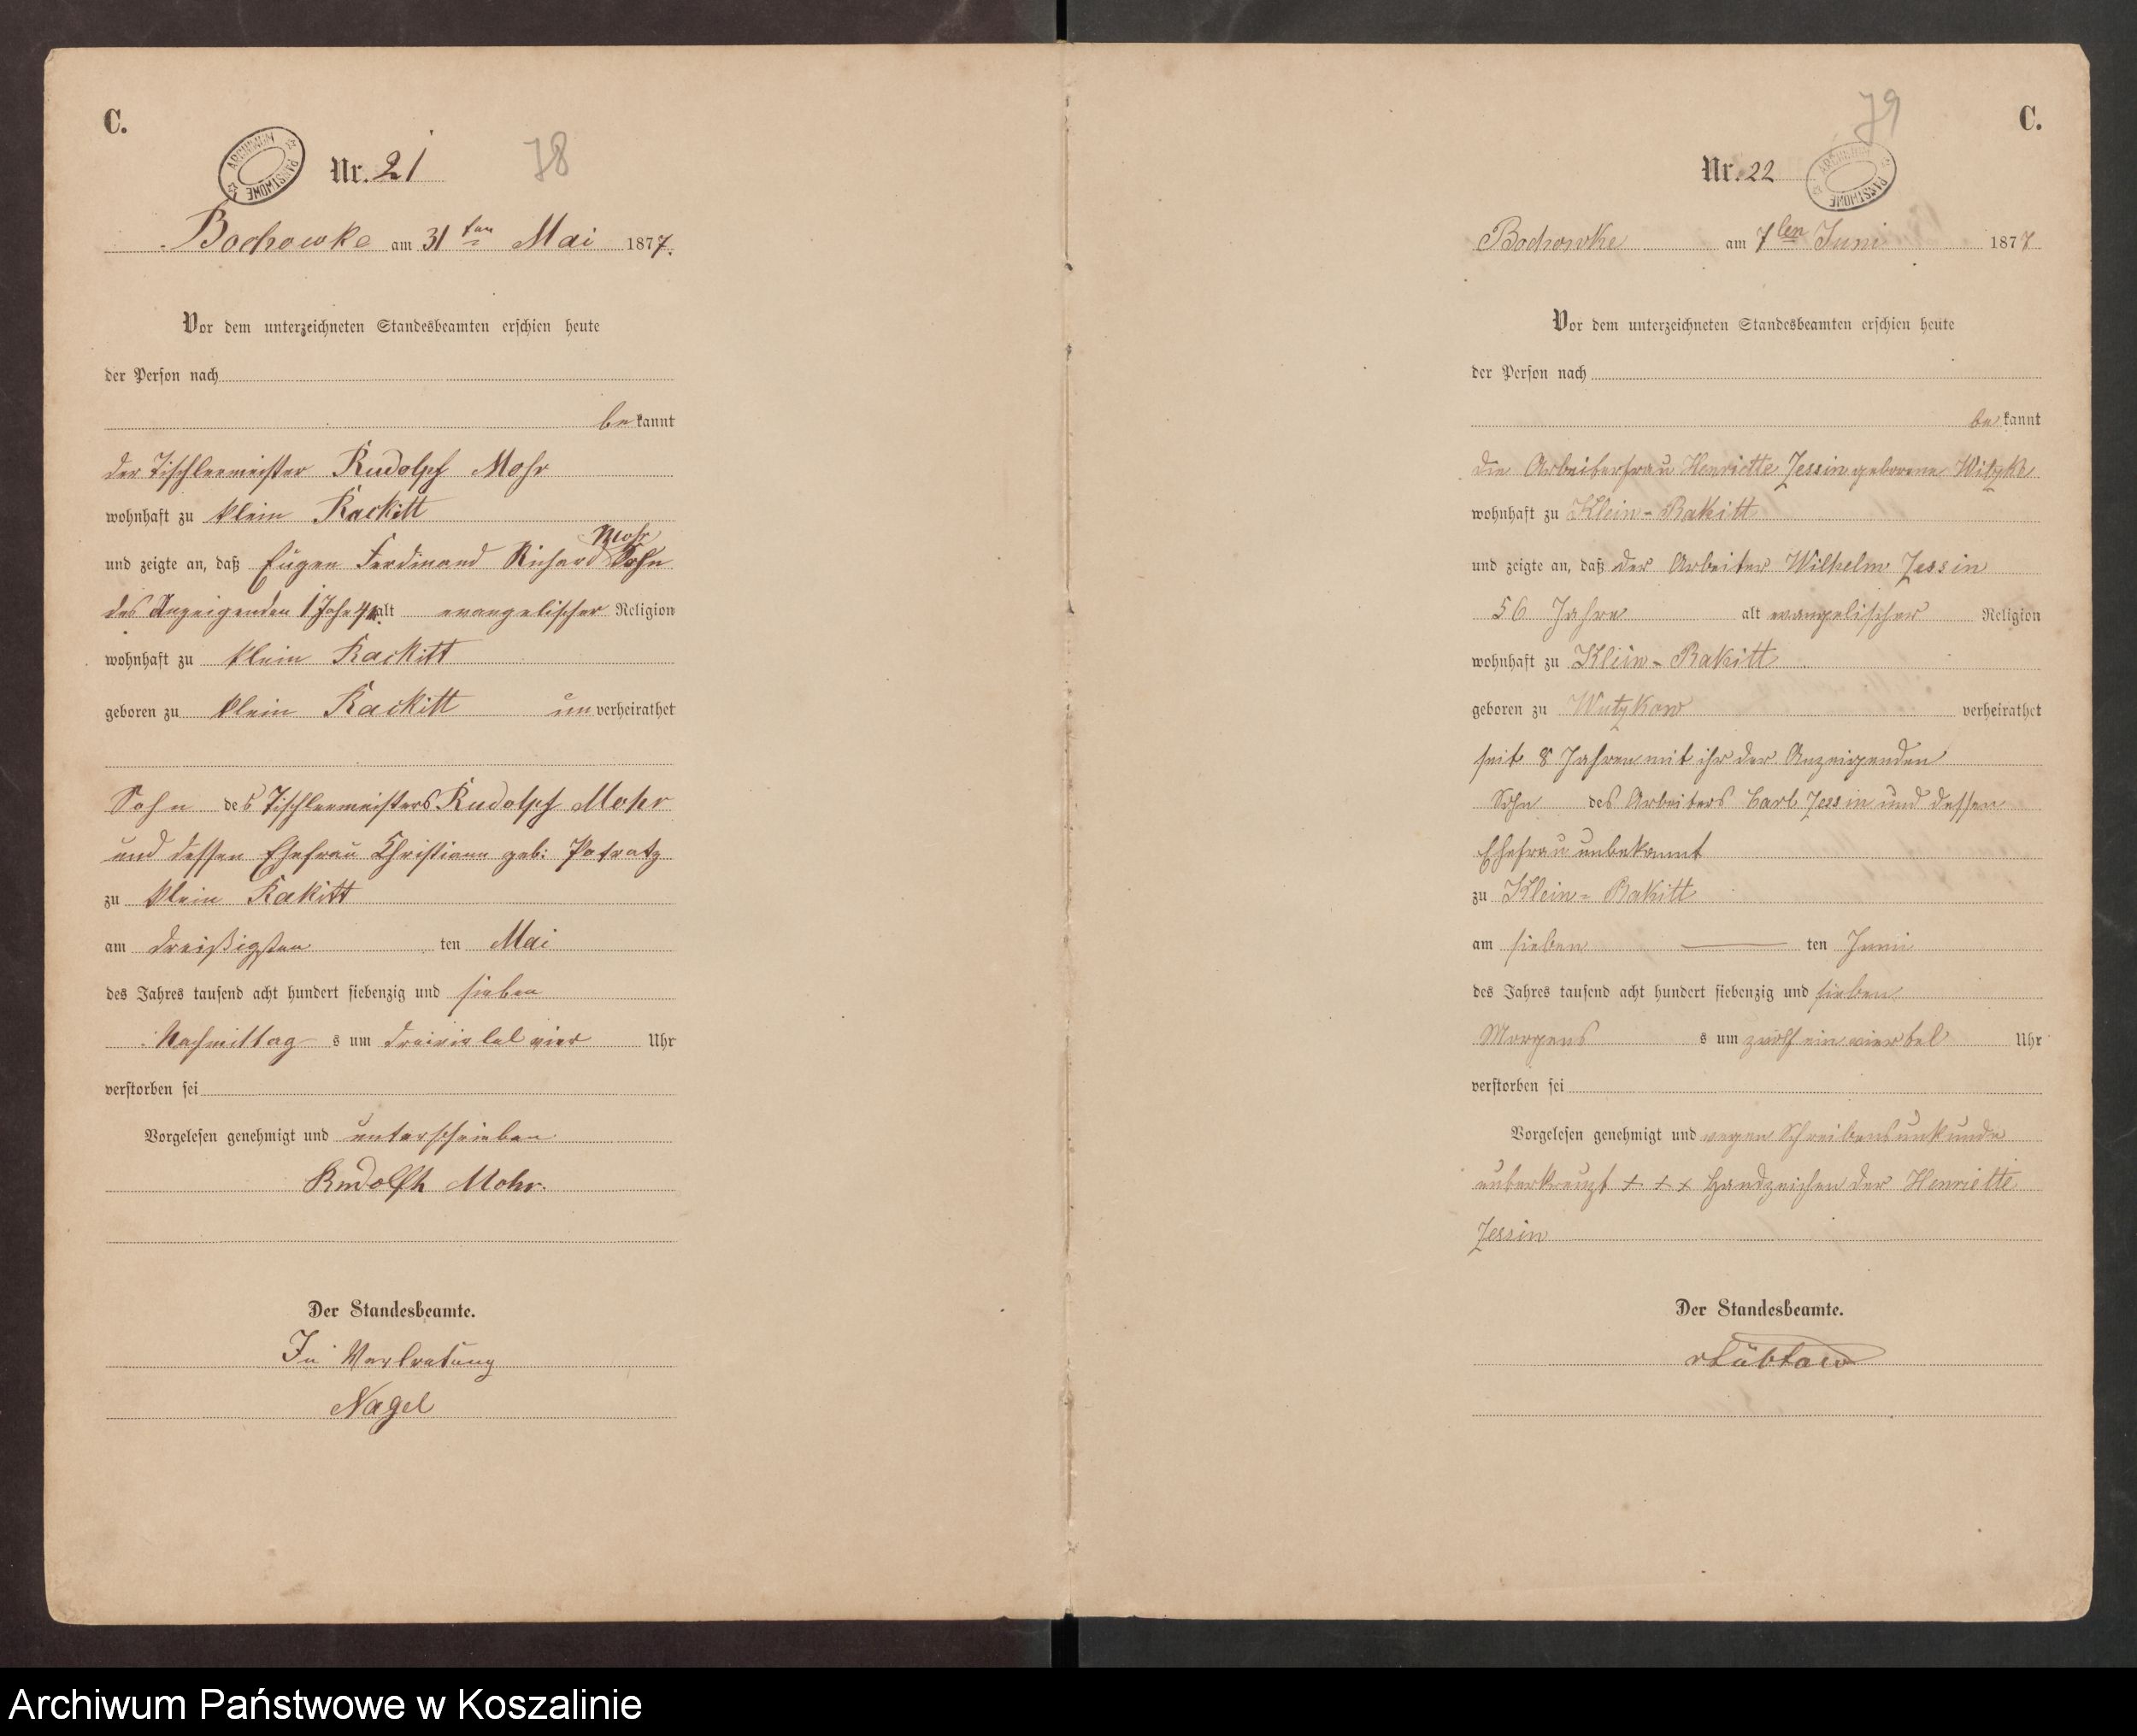 C.
Nr. 21
78
ARCHIWUM PAŃSTWOWE
Bochowke am 31ten Mai 1877.
Vor dem unterzeichneten Standesbeamten erschien heute
der Person nach
bekannt
der Tischlermeister Rudolph Mohr
wohnhaft zu klein Rackitt
Mohr
und zeigte an, daß Eugen Ferdinand Richard Sohn
des Anzeigenden 1 Jahr 4 alt evangelischer Religion
wohnhaft zu klein Rackitt
geboren zu klein Rackitt unverheirathet
Sohn des Tischlermeisters Rudolph Mohr
und dessen Ehefrau Christiann geb: Potratz
zu klein Rakitt
am dreißigsten ten Mai
des Jahres tausend acht hundert siebenzig und sieben
Nachmittag s um dreiviertel vier Uhr
verstorben sei
Vorgelesen genehmigt und unterschrieben
Rudolph Mohr.
Der Standesbeamte.
In Vertretung
Nagel
C.
79
Nr. 22
ARCHIWUM PAŃSTWOWE
Bochowke am 7ten Juni 1877
Vor dem unterzeichneten Standesbeamten erschien heute
der Person nach
bekannt
die Arbeiterfrau Henriette Jessin geborene Witzke
wohnhaft zu Klein-Rakitt
und zeigte an, daß der Arbeiter Wilhelm Jessin
56 Jahre alt evangelischer Religion
wohnhaft zu Klein-Rakitt
geboren zu Wutzkow verheirathet
seit 8 Jahren mit ihr der Anzeigenden
Sohn des Arbeiters Carl Jessin und dessen
Ehefrau unbekannt
zu Klein-Rakitt
am sieben ten Juni
des Jahres tausend acht hundert siebenzig und sieben
Morgens s um zwölf ein viertel Uhr
verstorben sei
Vorgelesen genehmigt und wegen Schreibensunkunde
unterkreuzt + + + Handzeichen der Henriette
Jessin
Der Standesbeamte.
Archiwum Państwowe w Koszalinie